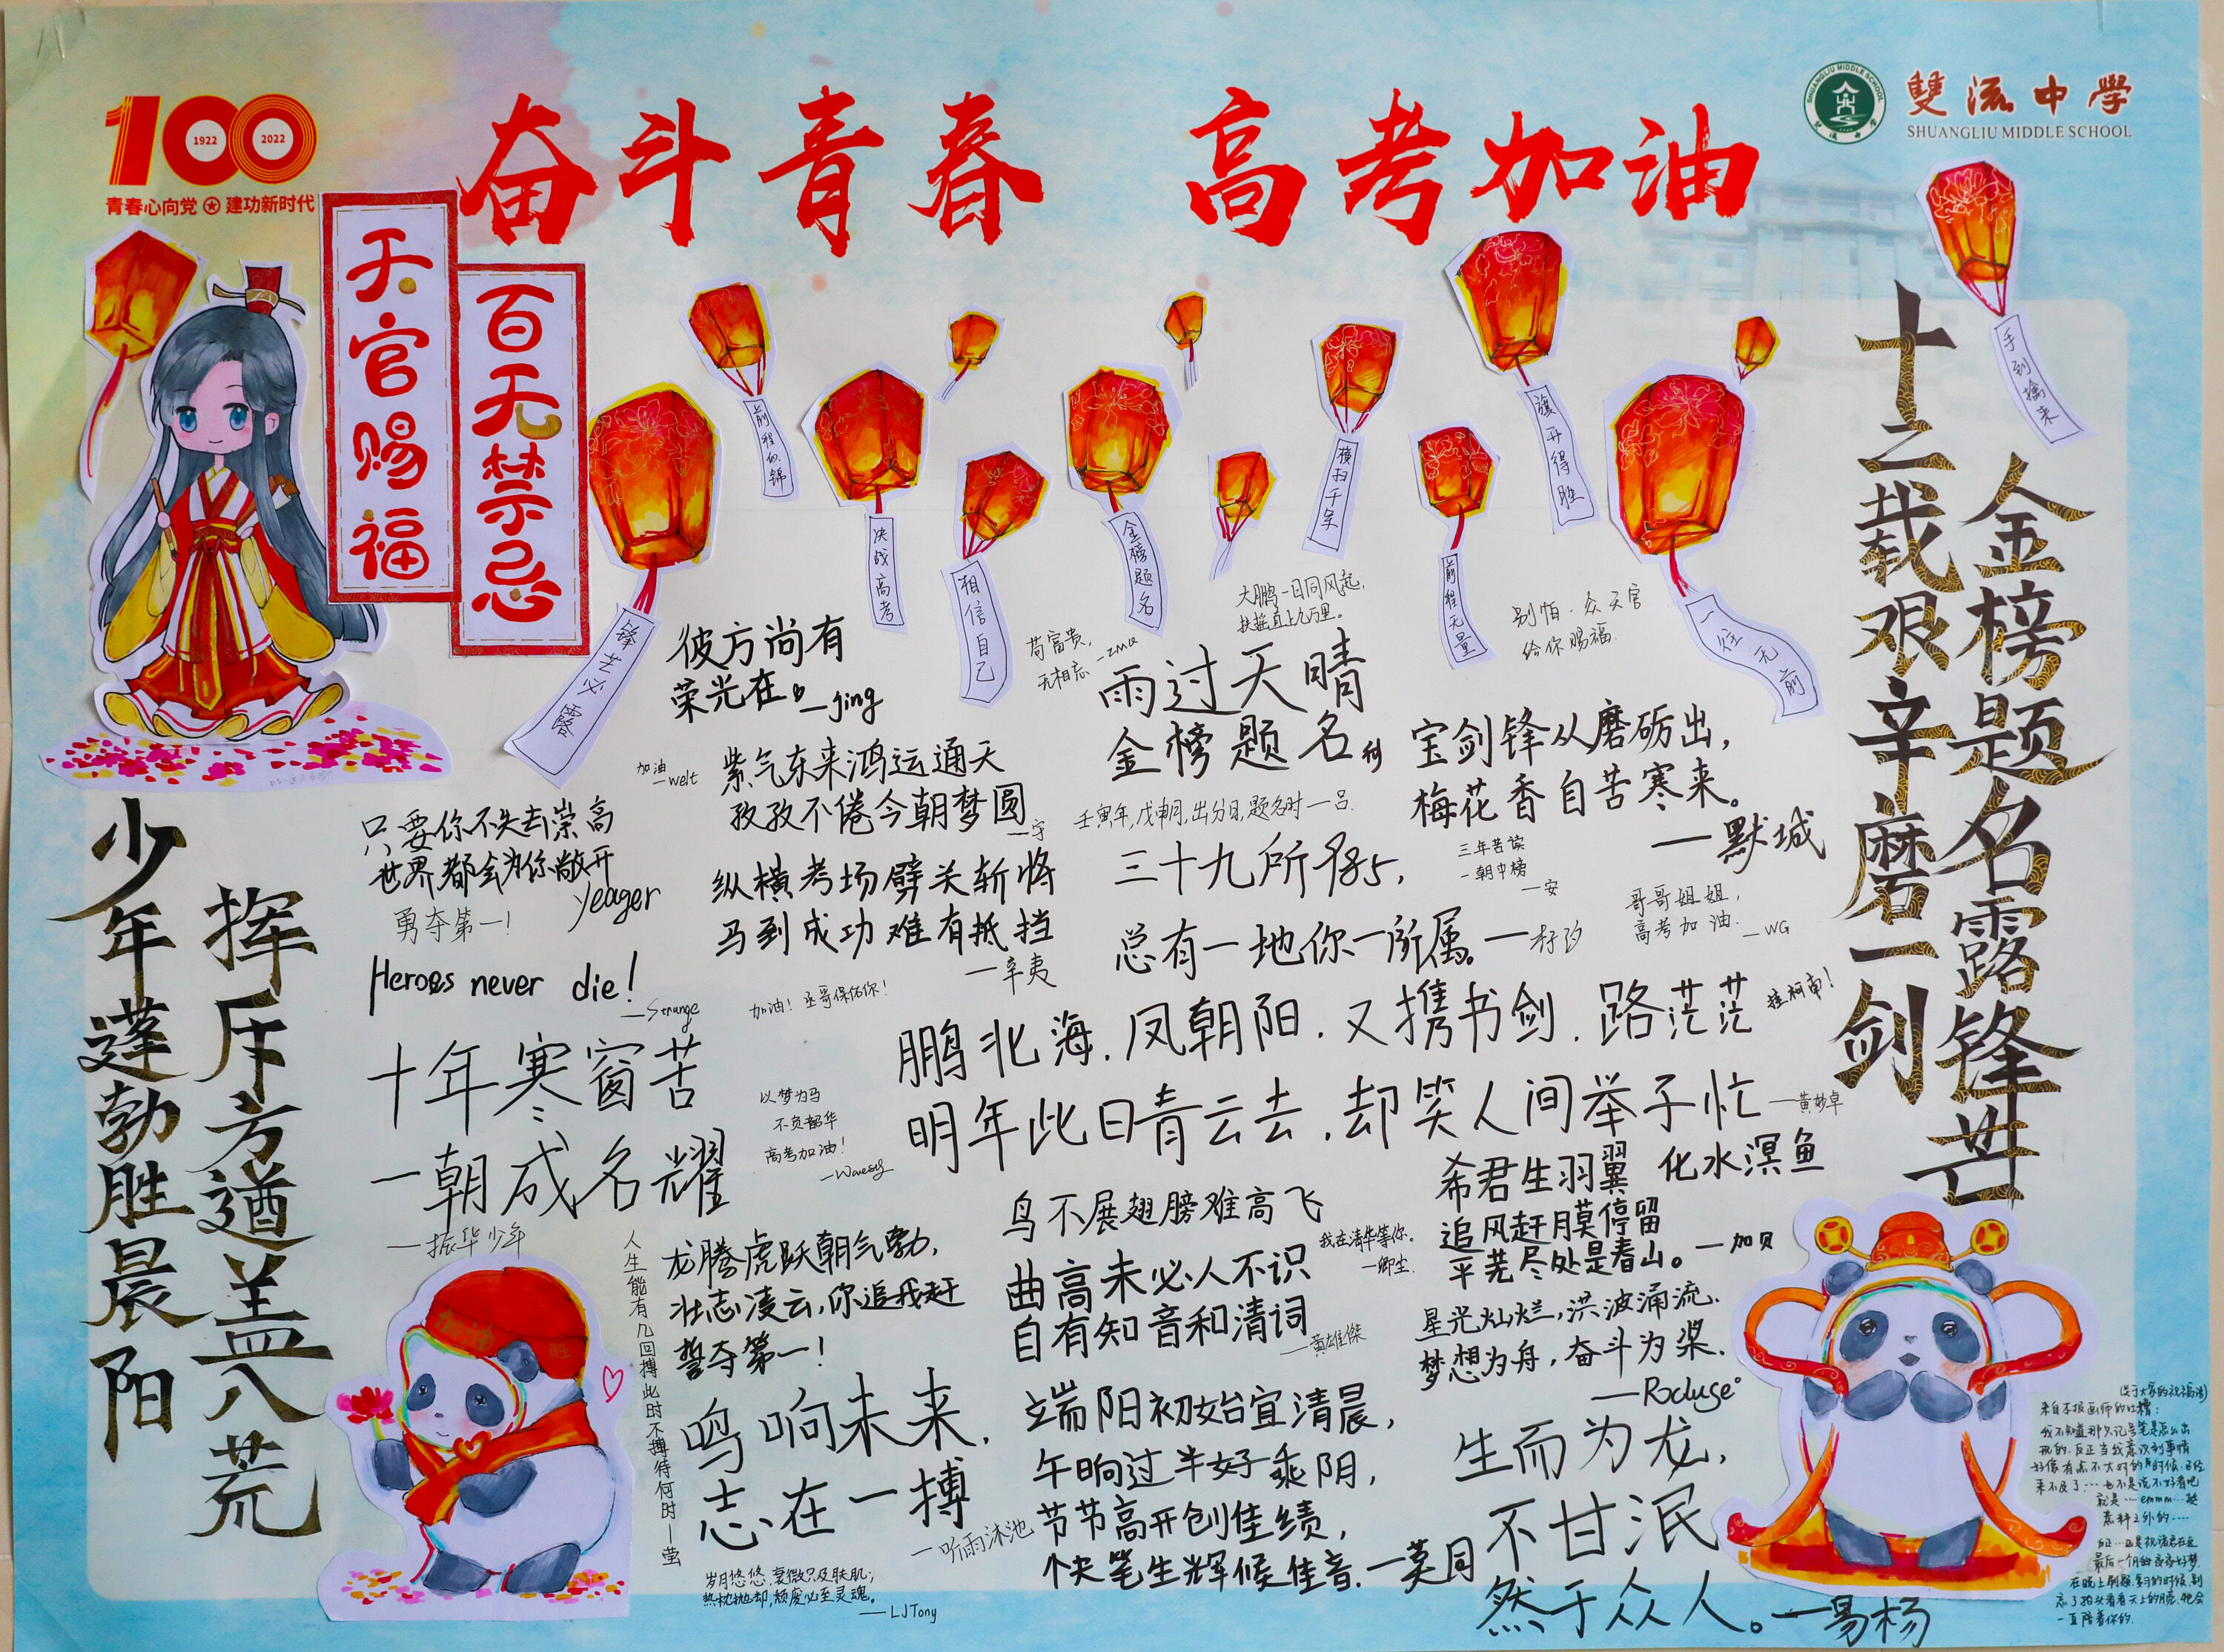 100
1922
2022
青春心向党 建功新时代
奋斗青春 高考加油
SHUANGLIU MIDDLE SCHOOL
雙流中學
雙流中學
SHUANGLIU MIDDLE SCHOOL
天官赐福
百无禁忌
锋芒必露
前程似锦
决战高考
相信自己
金榜题名
横扫千军
前程无量
旗开得胜
一往无前
手到擒来
十二载艰辛磨一剑
金榜题名露锋芒
少年蓬勃胜晨阳
挥斥方遒盖八荒
彼方尚有
荣光在。—jing
苟富贵,
无相忘 —zma
大鹏一日同风起,
扶摇直上九万里。
别怕·众天官
给你赐福.
雨过天晴
金榜题名
加油
—welt
紫气东来鸿运通天
孜孜不倦今朝梦圆
—宇
壬寅年,戊申月,出分日,题名时—吕.
宝剑锋从磨砺出,
梅花香自苦寒来。
—默城
只要你不失去崇高
世界都会为你敞开
Yeager
勇夺第一!
纵横考场劈关斩将
马到成功难有抵挡
—辛夷
三十九所985,
总有一地你一所属。
三年苦读
一朝中榜
—安
哥哥姐姐,
高考加油.
—WG
Heroes never die!
—Strange
加油! 丞哥保佑你!
鹏北海.凤朝阳.又携书剑.路茫茫
挂柯南!
明年此日青云去,却笑人间举子忙
—黄妙卓
十年寒窗苦
一朝成名耀
—振华少年
以梦为马
不负韶华
高考加油!
人生能有几回搏此时不搏待何时—莹
龙腾虎跃朝气勃,
壮志凌云,你追我赶
誓夺第一!
鸟不展翅膀难高飞
曲高未必人不识
自有知音和清词
—黄雄傑
我在清华等你.
—卿尘
希君生羽翼 化水溟鱼
追风赶月莫停留
平芜尽处是春山。—加贝
星光灿烂,洪波涌流.
梦想为舟,奋斗为桨.
鸣响未来,
志在一搏
—听雨沐池
端阳初始宜清晨,
午晌过半好乘阴,
节节高开创佳绩,
快笔生辉候佳音.—莫同
生而为龙,
不甘泯
然于众人。—易杨
岁月悠悠,衰微只及肤肌;
热忱抛却,颓废必至灵魂。
—LJTony
加油
胜
(关于大家的祝福语)
来自本报画师的吐槽: